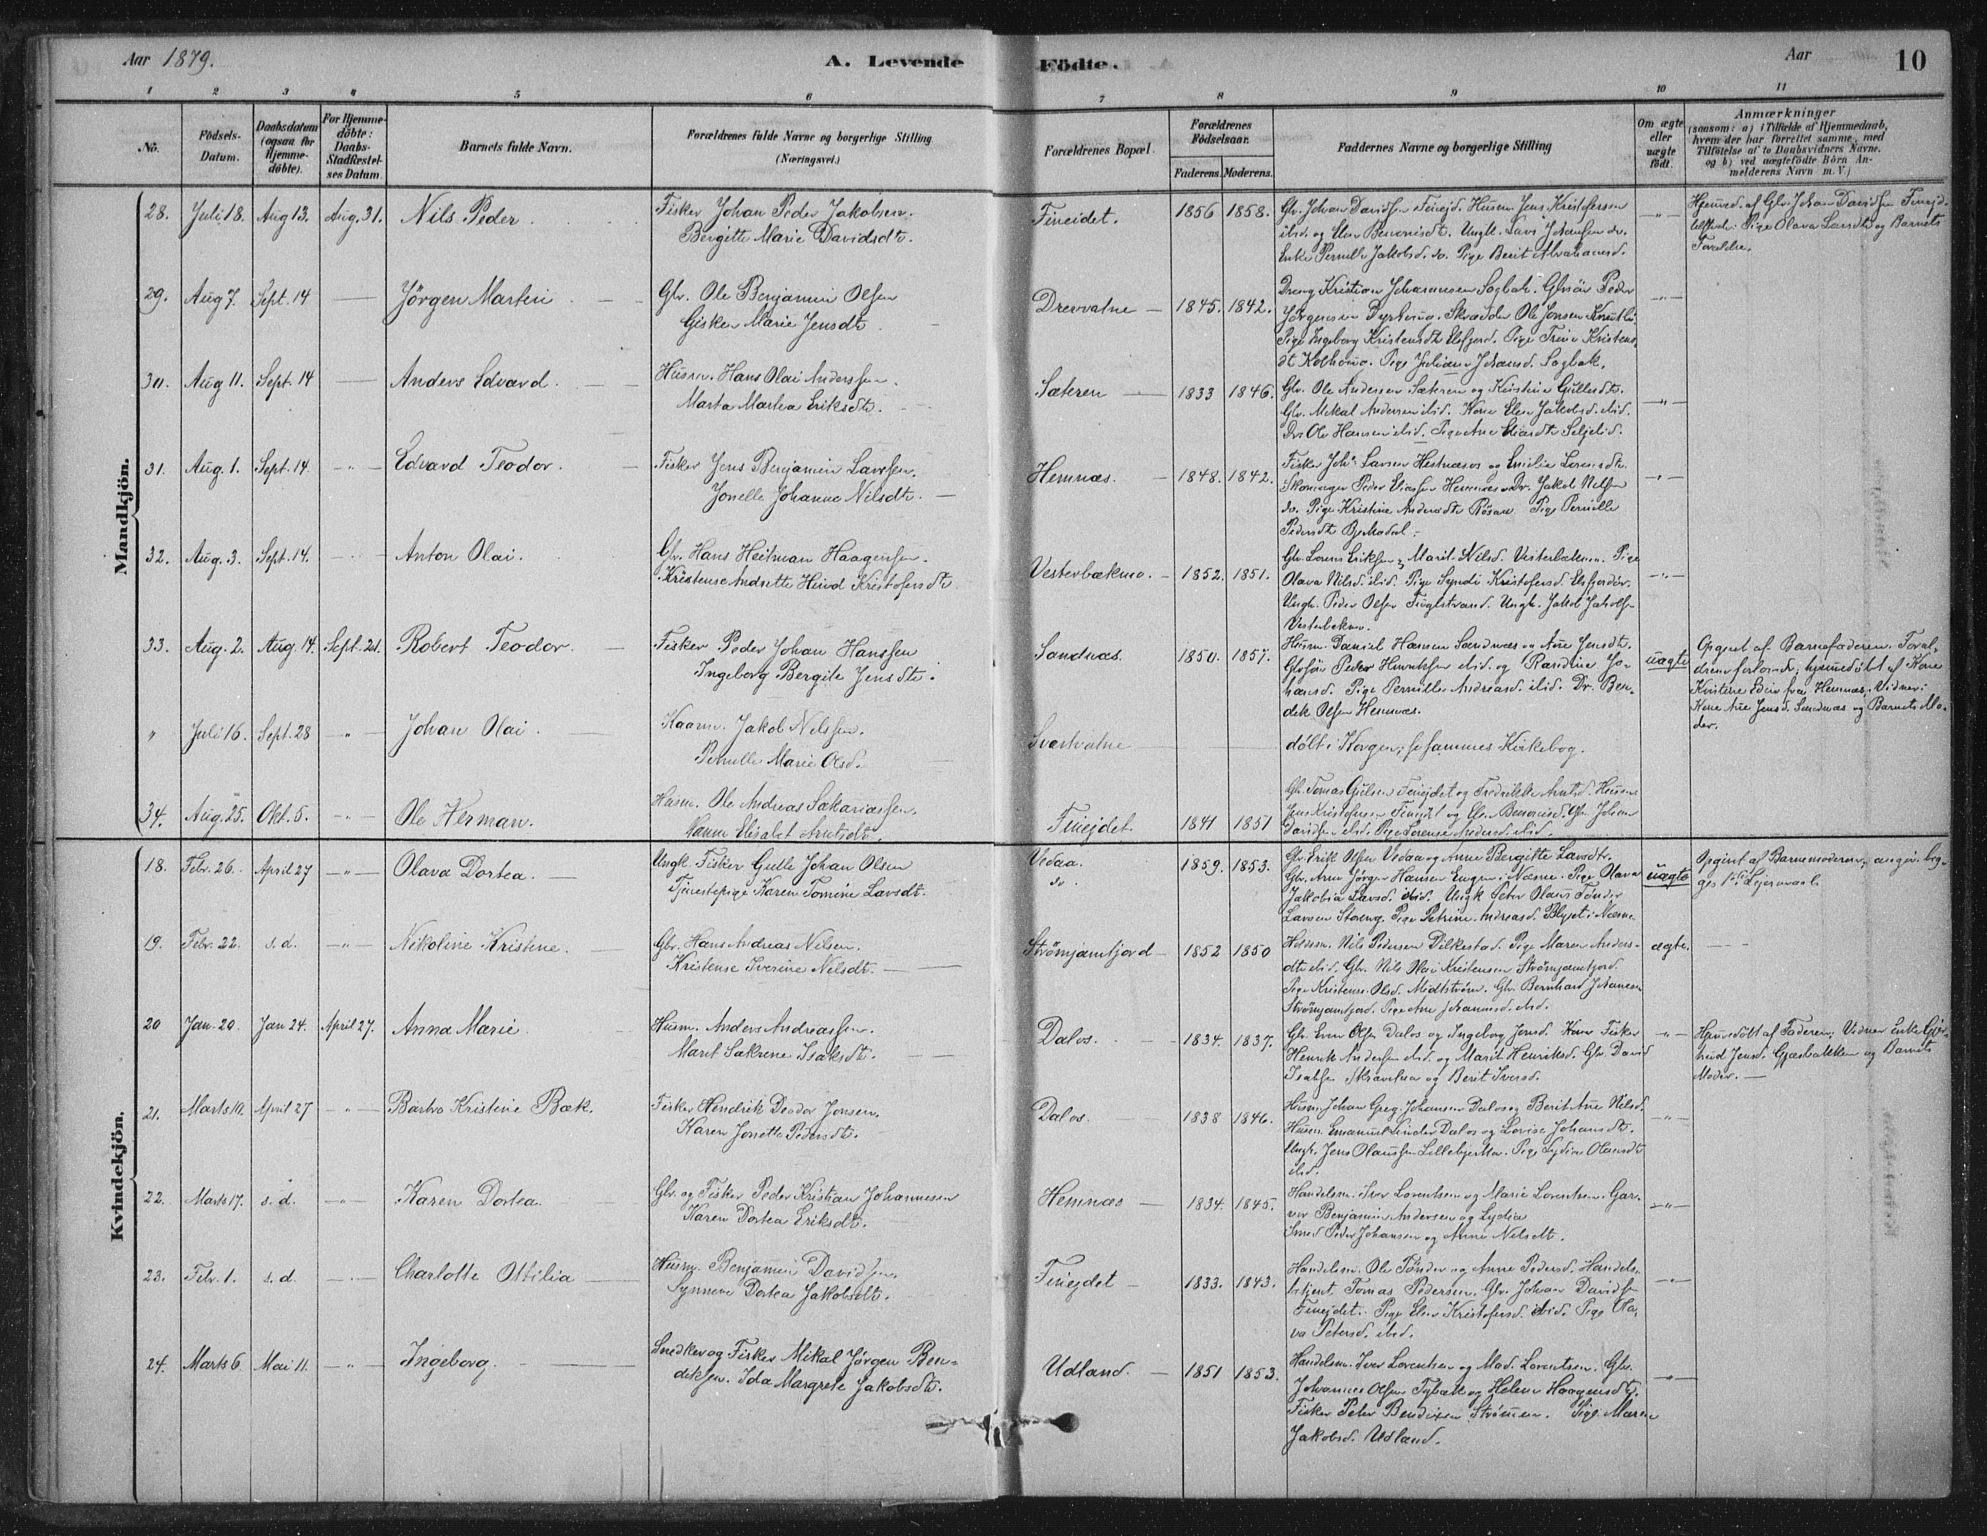 Aar 1879.
A. Levende Födte.
Aar
10
1 2 3 4 5 6 7 8 9 10 11
No.
Födsels-Datum.
Daabsdatum (ogsaa for Hjemmedöbte).
For Hjemmedöbte: Daabs-Stadfæstelses Datum
Barnets fulde Navn.
Forældrenes fulde Navne og borgerlige Stilling (Næringsvei.)
Forældrenes Bopæl.
Forældrenes Födselsaar.
Faderens. Moderens.
Faddernes Navne og borgerlige Stilling
Om ægte eller uægte födt.
Anmærkninger
(saasom: a) i Tilfælde af Hjemmedaab, hvem der har forrettet samme, med Tilföielse af to Daabsvidners Navne. og b) ved uægtefödte Börn Anmelderens Navn m. V.)
Mandkjön.
28. Juli 18. Aug 13. Aug. 31. Nils Peder
Fisker Johan Peder Jakobsen.
Bergitte Marie Davidsdt.
Fineidet. 1856 1858.
Gbr. Johan Davidsen Finejd. Husm. Jens Kristofersen
ibid. og Elen Benonisdt. Ungk. Lars Johansen do.
Enke Pernille Jakobsd. do. Pige Berit Abrahamsd.
Hjemmed. af Gbr. Johan Davidsen Finejd.
tilstede: Pige Olava Larsdt. og Barnets
Forældre.
29. Aug 7. Sept. 14 Jörgen Martin
Gbr. Ole Benjamin Olsen
Gisken Marie Jensdt.
Drevvatne 1845. 1842.
Dreng Kristian Johannesen Sagbak. Peder
Jörgensen Skrædder Ole Jonsen
Pige Ingeborg Kristensdt. Elsfjord. Pige Trine Kristens-
dt. Pige Julianne Johansd. Sagbak.
30. Aug 11. Sept. 14 Anders Edvard.
Husm. Hans Olai Anderssen.
Marta Martea Eriksdt.
Sæteren 1833 1846.
Gbr. Ole Andersen Sæteren og Kristine
Gbr. Mikal Andersen ibid. Kone Elen Jakobsd. ibid.
Dr. Ole Hansen ibid. Pige Ane
31. Aug. 1. Sept. 14. Edvard Teodor.
Fisker Jens Benjamin Larssen.
Jonelle Johanne Nilsdt.
Hemnæs. 1848. 1842.
Fisker Larsen og Emelie
Peder Eliassen Hemnæs. Dr. Jakob Nilsen
do. Pige Kristine Andersdt. Røsaa. Pige Pernille
Pedersdt.
32. Aug. 3. Sept. 14. Anton Olai.
Gbr. Hans Heitman Haagensen.
Kristense Andrette Hind Kristofersdt.
Vesterbækmo. 1852. 1851.
Gbr. Eriksen, Marit Nilsd. Vesterbækmo. Pige
Olava Nilsd. ibid. Pige Kristofersd.
Ungk. Peder Olsen Ungk. Jakob
Vesterbækmo.
33. Aug. 2. Aug. 14. Sept. 21. Robert Teodor
Fisker Peder Johan Hanssen
Ingeborg Bergite Jensdt.
Sandnæs. 1850. 1857.
Husm. Daniel Hansen Sandnæs og Ane Jensdt.
Peder Henriksen ibid. og Randine Jo-
hansd. Pige Pernille Andreasd. ibid. Dr. Ben-
dik Olsen Hemnæs.
uægte
Opgivet af Barnefaderen. Foræl-
drene forlovede; hjemmedöbt af Kone
Kristine fra Hemnæs. Vidner:
Kone Ane Jensd. Sandnæs og Barnets Mo-
der.
" Juli 16. Sept. 28 Johan Olai
Jakob Nilssen.
Pernille Marie Olsd.
Svartvatne
döbt i Korgen, se sammes Kirkebog.
34. Aug. 25. Okt. 5. Ole Herman.
Husm. Ole Andreas Sakariassen.
Hanna Elisabet Arntsdt.
Finejdet. 1841 1851
Gbr. Tomas Finejdet og Fredrikke Arntsd. Husm.
Jens Kristofersen Finejdet og Elen Benonisd. Gbr. Johan
Davidsen ibid. Pige Andersd. ibid.
Kvindekjön.
18. Febr. 26. April 27 Olava Dortea.
Ungk. Fisker Gulle Johan Olsen
Tjenestepige Karen Tomine Larsdt.
Vedaa
do. 1859. 1853.
Gbr. Erik Olsen Vedaa og Anne Bergitte Larsdt.
Gbr. Arn Jörgen Hansen Engen i Næsne. Pige Olava
Jakobia Larsd. ibid. Ungk. Peter Olaus
Larsen Pige Petrine Andreasd. i Næsne
uægte
Opgivet af Barnemoderen, angiv. beg-
ges 1ste Lejermaal.
19. Febr. 22. s. d. Nikoline Kristine.
Gbr. Hans Andreas Nilsen.
Kristense Iverine Nilsdt.
Strömjamtfjord 1852 1850
Husm. Nils Pedersen Dilkestad. Pige Maren Anders-
dt. ibid. Gbr. Nils Olai Kristensen Strömjamtfjord.
Pige Kristense Olsd. Midtström. Gbr. Bernhard Johannes.
Strömjamtfjord. Pige Ane Johannesd. ibid.
ægte.
20 Jan. 20. Jan 24. April 27. Anna Marie
Husm. Anders Andreassen.
Marit Sakrine Isaksdt.
Dalos. 1834. 1837.
Gbr. Even Olsen Dalos og Ingeborg Jensd. Kone Fisker
Henrik Andersen ibid. og Marit Henriksd. Gbr. David
Isaksen og Berit Iversd.
Hjemmedöbt af Faderen. Vidner Enke
Jensd. Gjæsbakken og Barnets
Moder.
21. Marts 10. April 27 Barbro Kristine Bæk.
Fisker Hendrik Teodor Jonsen.
Karen Jonette Pedersdt.
Dalos. 1838 1846.
Husm. Johan Greg. Johansen Dalos og Berit Ane Nilsd.
Husm. Emanuel Dalos og Lovise Johansdt.
Ungk. Jens Olaussen Pige Lydia Olausdt.
ibid.
22. Marts 17. s. d. Karen Dortea.
Gbr. og Fisker Peder Kristian Johannesen
Karen Dortea Eriksdt.
Hemnæs 1834. 1845.
Handelsm. Iver Lorentsen og Marie Lorentsen. Gar-
ver Benjamin Andersen og Lydia
Smed Peder Johansen og Anne Nilsdt.
23. Febr. 1. s. d. Charlotte Ottilia
Husm. Benjamin Davidsen.
Synneve Dortea Jakobsdt.
Finejdet 1833. 1843.
Handelsm. Ole Tönder og Anne Pedersd. Handels-
betjent Tomas Pedersen. Gbr. Johan Davidsen
Finejdet. Pige Elen Kristofersd. ibid. Pige Ola-
va Petersd. ibid.
24. Marts 6. Mai 11. Ingeborg.
Snedker og Fisker Mikal Jörgen Ben-
diksen. Ida Margrete Jakobsdt.
Udland. 1851 1853.
Handelsm. Iver Lorentsen og Mad. Lorentsen. Gbr.
Johannes Olsen og Helene Haagensdt.
Fisker Peter Bendixen Strömmen. Pige Maren
Jakobsd. Udland.